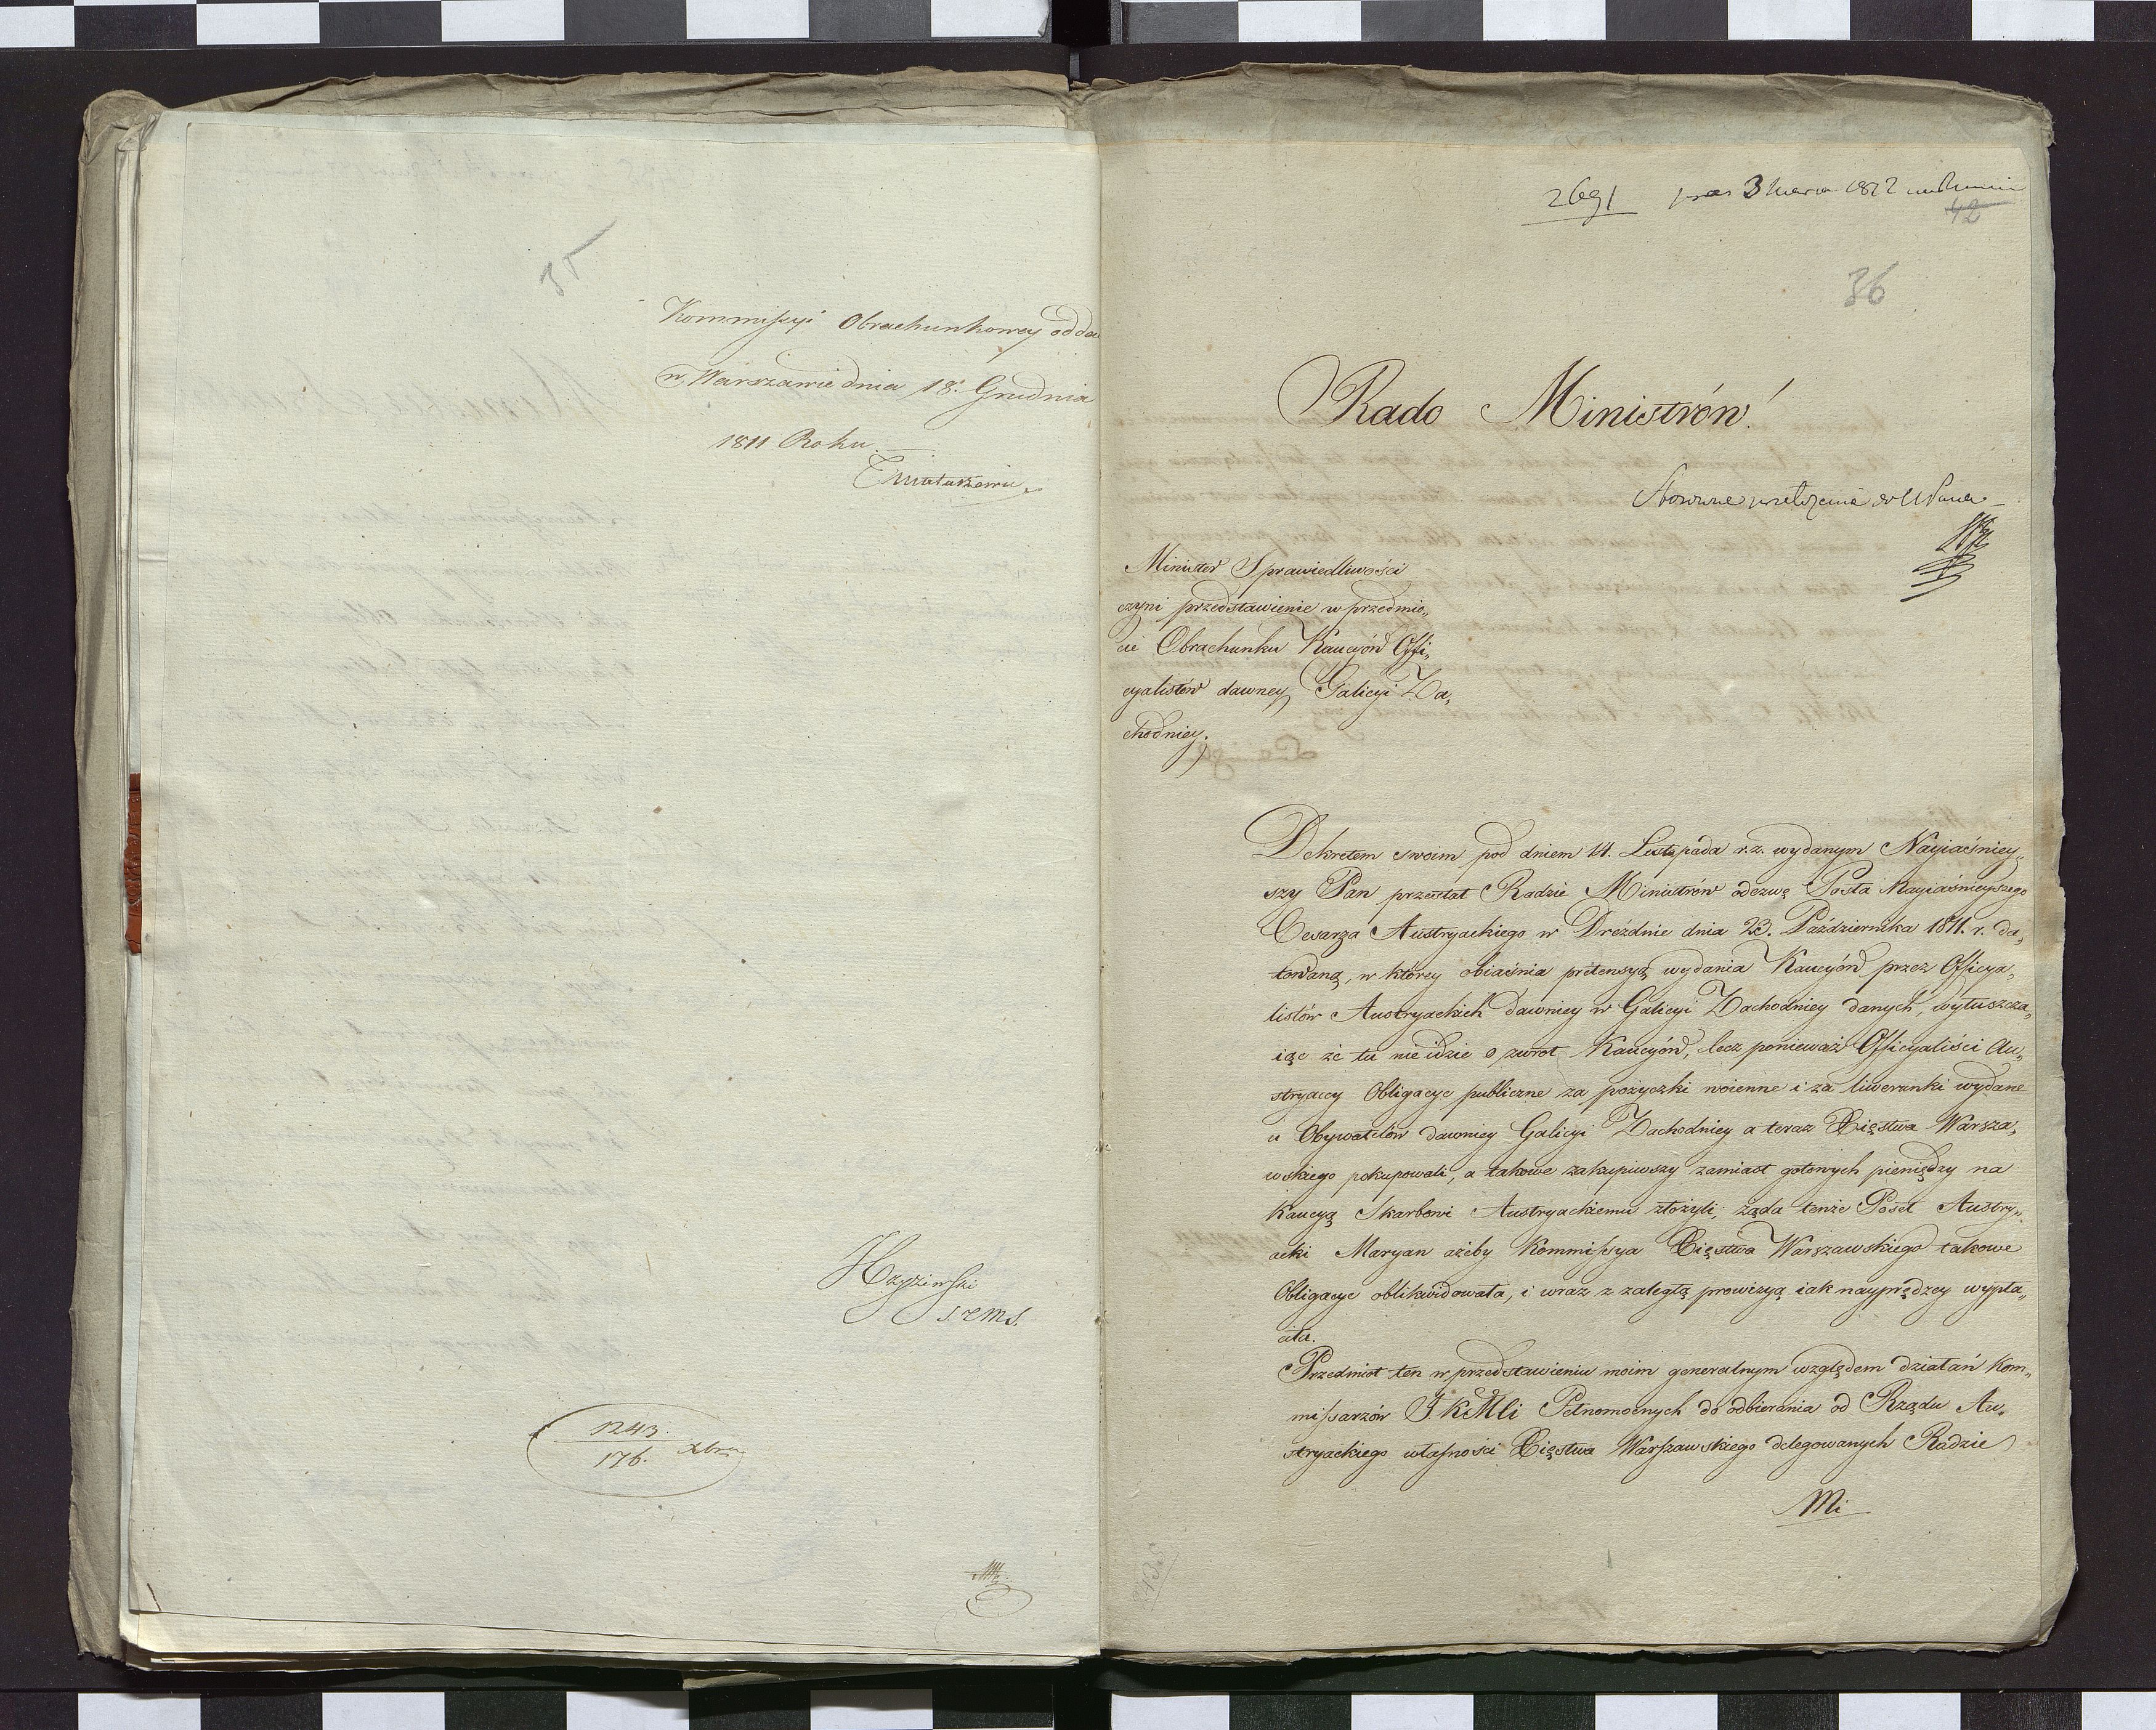 35
Kommissyi Obrachunkowey odda
w Warszawie dnia 18. Grudnia
1811 Roku.
TMatuszewic
1243.
176. Xbra
2691 3 Marca 1812
42
36
Rado Ministrów!
Stosowne do
Minister Sprawiedliwości
czyni przedstawienie w przedmie„
cie Obrachunku Kaucyów Offi„
cyalistów dawney Galicyi Za„
chodniey.
Dekretem swoim pod dniem 14. Listopada r.z. wydanym Nayiaśniey„
szy Pan przesłał Radzie Ministrów odezwę Posła Nayiaśnieyszego
Cesarza Austryackiego w Dreźdnie dnia 23. Października 1811. r. da„
towaną, w którey obiaśnia pretensyą wydania Kaucyów przez Officya„
listów Austryackich dawniey w Galicyi Zachodniey danych, wyłuszcza„
iąc że tu nie idzie o zwrot Kaucyów, lecz ponieważ Officyaliści Au„
stryaccy Obligacye publiczne za pożyczki woienne i za liweranki wydane
u Obywatelów dawniey Galicyi Zachodniey a teraz Xięstwa Warsza„
wskiego pokupowali, a takowe zakupiwszy zamiast gotowych pieniędzy na
Kaucyą Skarbowi Austryackiemu złożyli; żąda tenże Poseł Austry„
acki Maryan ażeby Kommissya Xięstwa Warszawskiego takowe
Obligacye oblikwidowała, i wraz z zaległą prowizyą iak nayprędzey wypła„
ciła.
Przedmiot ten w przedstawieniu moim generalnym względem działań Kom„
missarzów J. K Mli Pełnomocnych do odbierania od Rządu Au„
stryackiego własności Xięstwa Warszawskiego delegowanych Radzie
Mi